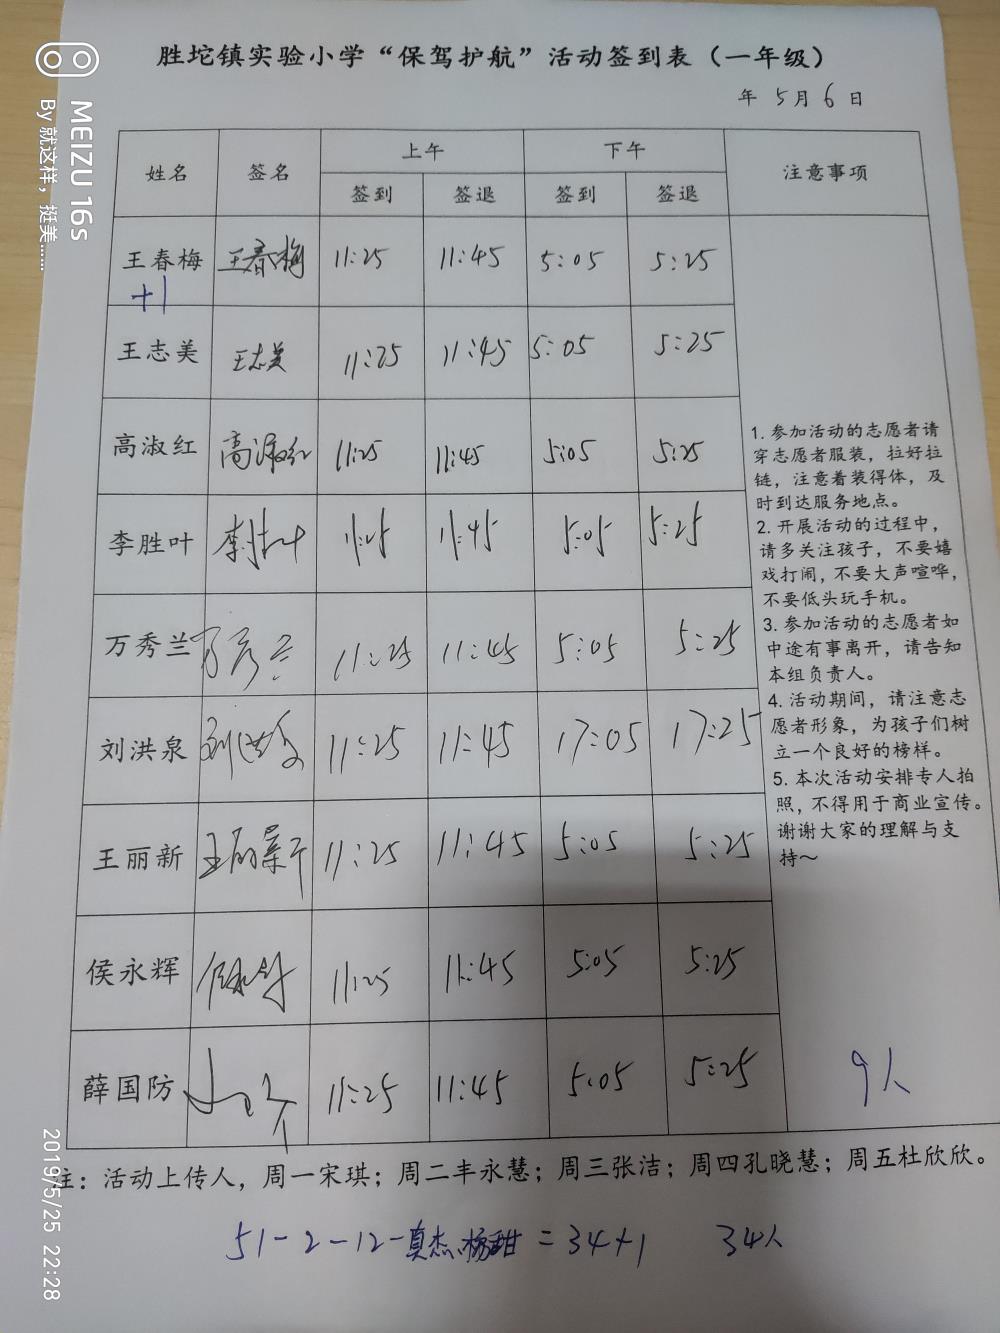 胜坨镇实验小学“保驾护航”活动签到表（一年级）
年 5月6日
姓名 签名 上午 下午 注意事项
签到 签退 签到 签退
王春梅 王春梅 11:25 11:45 5:05 5:25
+1
王志美 王志美 11:25 11:45 5:05 5:25
高淑红 高淑红 11:25 11:45 5:05 5:25
李胜叶 李胜叶 11:25 11:45 5:05 5:25
万秀兰 万秀兰 11:25 11:45 5:05 5:25
刘洪泉 刘洪泉 11:25 11:45 17:05 17:25
王丽新 王丽新 11:25 11:45 5:05 5:25
侯永辉 侯永辉 11:25 11:45 5:05 5:25
薛国防 11:25 11:45 5:05 5:25
1. 参加活动的志愿者请
穿志愿者服装，拉好拉
链，注意着装得体，及
时到达服务地点。
2. 开展活动的过程中，
请多关注孩子，不要嬉
戏打闹，不要大声喧哗，
不要低头玩手机。
3. 参加活动的志愿者如
中途有事离开，请告知
本组负责人。
4. 活动期间，请注意志
愿者形象，为孩子们树
立一个良好的榜样。
5. 本次活动安排专人拍
照，不得用于商业宣传。
谢谢大家的理解与支
持～
9人
注：活动上传人，周一宋琪；周二丰永慧；周三张洁；周四孔晓慧；周五杜欣欣。
51-2-12-真杰、杨甜=34+1 34人
MEIZU 16s
By 就这样，挺美……
2019/5/25 22:28